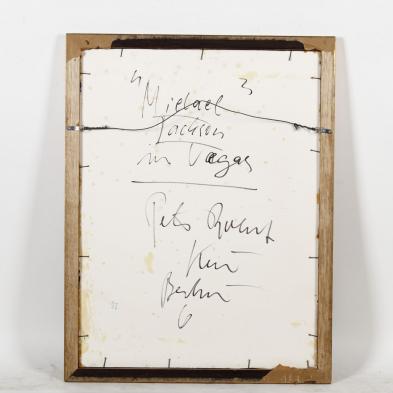 "Michael
Jackson
in Vegas"
Peter Robert
Keil
Berlin
6